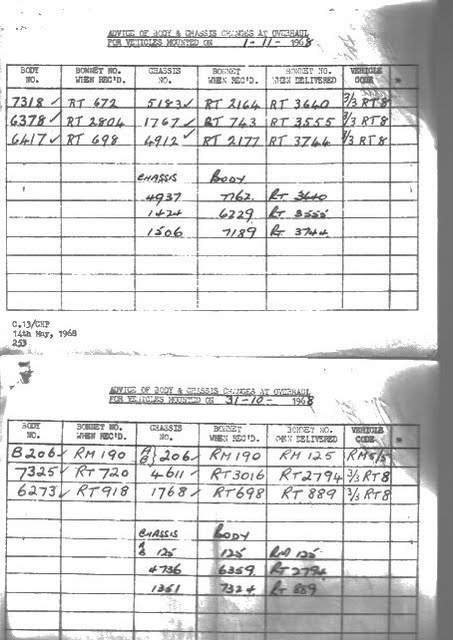 ADVICE OF BODY & CHASSIS CHANGES AT OVERHAUL
FOR VEHICLES MOUNTED ON 1-11-1968
BODY NO. BONNET NO. WHEN REC'D. CHASSIS NO. BONNET WHEN REC'D. BONNET NO. WHEN DELIVERED VEHICLE CODE
7318 ✓ RT 672 5183 ✓ RT 2164 RT 3640 3/3 RT8
6378 ✓ RT 2804 1767 ✓ RT 743 RT 3555 3/3 RT8
6417 ✓ RT 698 4912 ✓ RT 2177 RT 3744 3/3 RT8
CHASSIS BODY
4937 7762 RT 3640
1424 6229 RT 3555
1506 7189 RT 3744
C.13/CHP
14th May, 1968
253
ADVICE OF BODY & CHASSIS CHANGES AT OVERHAUL
FOR VEHICLES MOUNTED ON 31-10-1968
BODY NO. BONNET NO. WHEN REC'D. CHASSIS NO. BONNET WHEN REC'D. BONNET NO. WHEN DELIVERED VEHICLE CODE
B206 ✓ RM 190 A/B } 206 ✓ RM 190 RM 125 RM 5/5
7325 ✓ RT 720 4611 ✓ RT 3016 RT 2794 3/3 RT8
6273 ✓ RT 918 1768 ✓ RT 698 RT 889 3/3 RT8
CHASSIS BODY
A/B 125 125 RM 125
4736 6359 RT 2794
1351 7324 RT 889